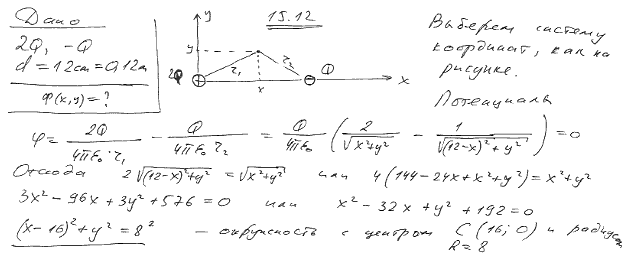 Дано
2Q, -Q
d = 12см = 0,12м
φ(x,y) = ?
15.12
y
y
r₁
r₂
2Q
Q
x
x
Выберем систему
координат, как на
рисунке.
Потенциал
φ = 2Q/(4πε₀·r₁) − Q/(4πε₀ r₂) = Q/(4πε₀) (2/√(x²+y²) − 1/√((12-x)²+y²)) = 0
Отсюда 2√((12-x)²+y²) = √(x²+y²) или 4(144-24x+x²+y²) = x²+y²
3x² - 96x + 3y² + 576 = 0 или x² - 32x + y² + 192 = 0
(x-16)² + y² = 8² - окружность с центром C (16; 0) и радиусом
R = 8